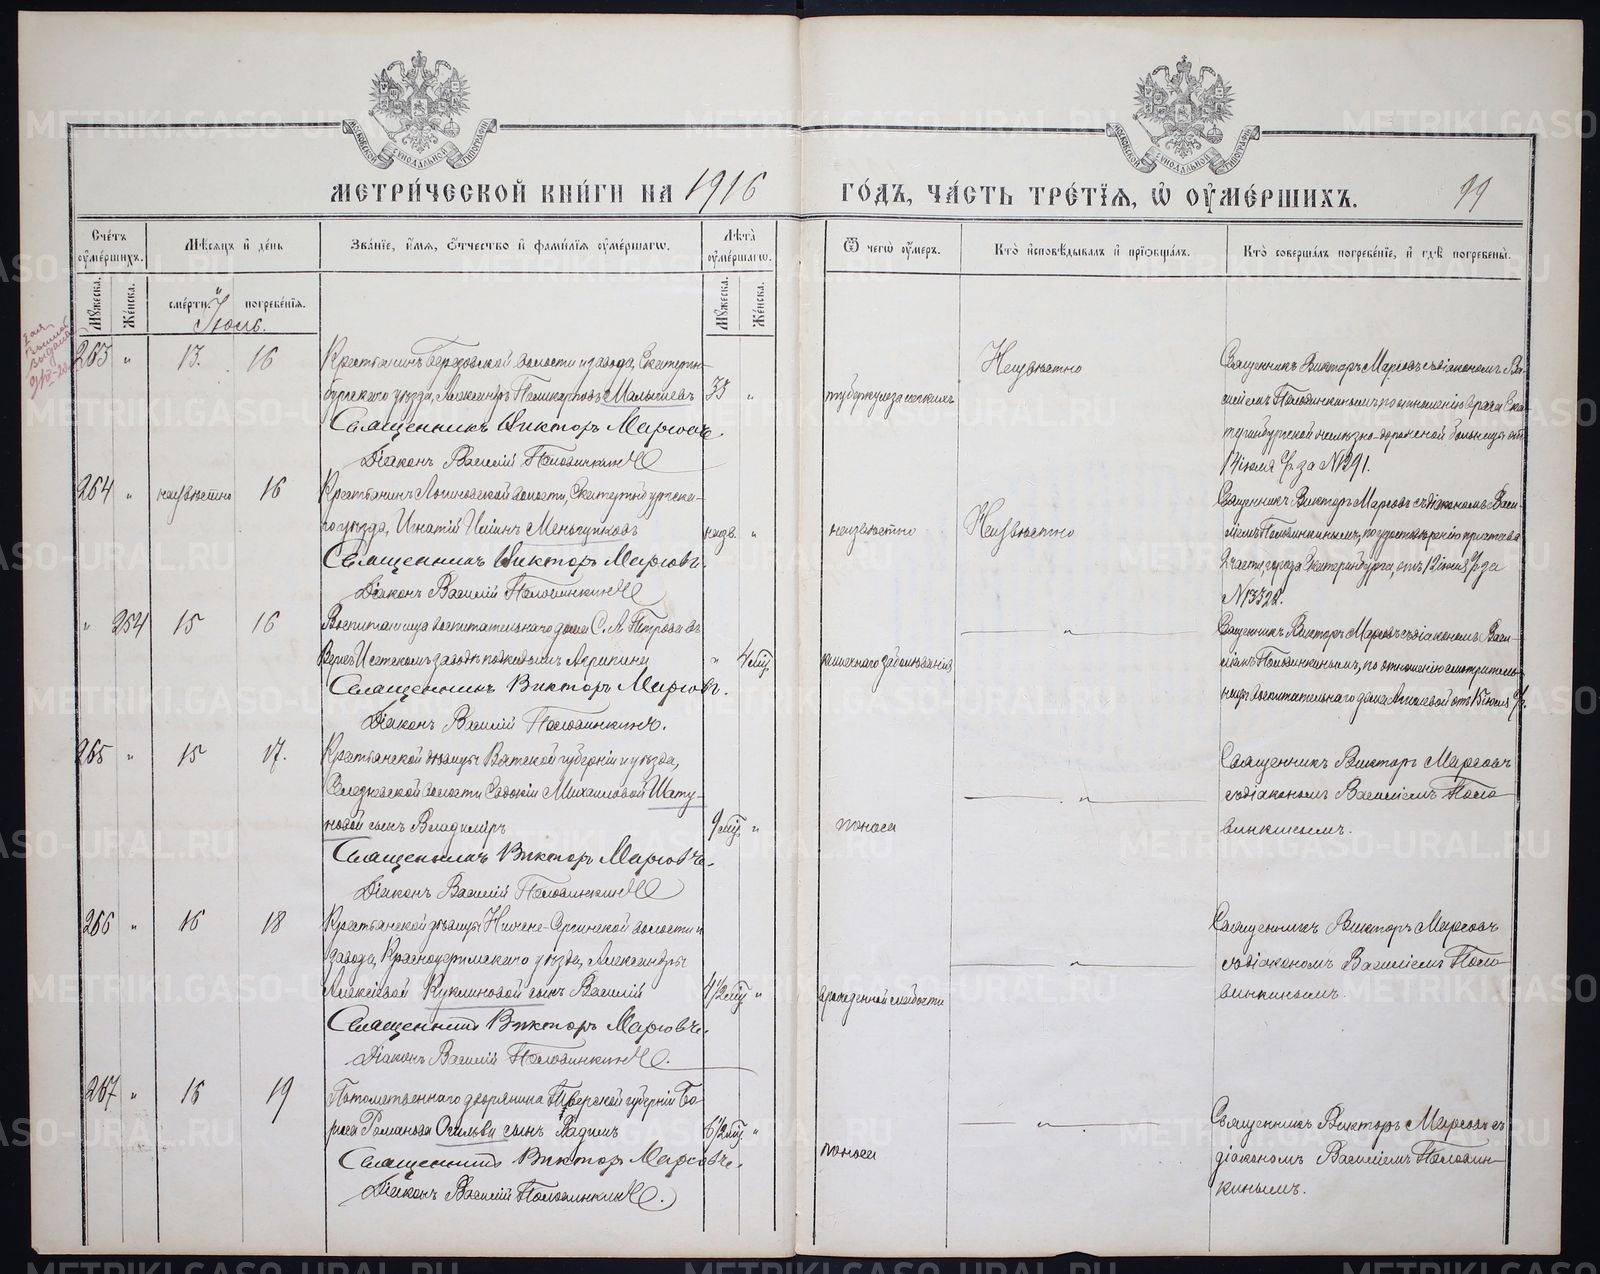 МОСКОВСКОЙ СѴНОДАЛЬНОЙ ТИПОГРАФІИ
МОСКОВСКОЙ СѴНОДАЛЬНОЙ ТИПОГРАФІИ
МЕТРИ́ЧЕСКОЙ КНИ́ГИ НА 1916
ГО́ДЪ, ЧА́СТЬ ТРЕ́ТІѦ, Ѡ ОУ҆МЕ́РШИХЪ. 99
Сче́тъ оу҆ме́ршихъ.
Мѣ́сяцъ и҆ де́нь
Зва́нїе, и҆́мѧ, о҆́тчество и҆ фами́лїѧ оу҆ме́ршагѡ.
Лѣ́та оу҆ме́ршагѡ.
Ѿ чегѡ̀ оу҆́меръ.
Кто̀ и҆сповѣ́дывалъ и҆ прїѡбща́лъ.
Кто̀ соверша́лъ погребе́нїе, и҆ гдѣ̀ погребены̀.
Мꙋ́жеска. Же́нска.
сме́рти. погребе́нїѧ.
Мꙋ́жеска. Же́нска.
Іюль.
263 " 13. 16
Крестьянинъ Березовской волости и завода, Екатерин-
бургскаго уѣзда, Александръ Поликарповъ Малышевъ 33 "
Священникъ Викторъ Марковъ.
Діаконъ Василій Половинкинъ
туберкулеза легкихъ
Неизвѣстно
Священникъ Викторъ Марковъ съ діакономъ Ва-
силіемъ Половинкинымъ, по отношенію врача Ека-
теринбургской желѣзно-дорожной больницы отъ
14 іюля с/г за №1291.
264 " неизвѣстно 16
Крестьянинъ Логиновской волости, Екатеринбургска-
го уѣзда, Игнатій Меньшиковъ неизв. "
Священникъ Викторъ Марковъ.
Діаконъ Василій Половинкинъ
неизвѣстно
Неизвѣстно
Священникъ Викторъ Марковъ съ діакономъ Васи-
ліемъ Половинкинымъ, по удостовѣренію пристава
2 части города Екатеринбурга, отъ іюля с/г за
№13322.
" 254 15 16
Воспитанница воспитательнаго дома С. А. Петрова въ
Верхъ-Исетскомъ заводѣ подкидышъ Агрипина " 4 мѣс
Священникъ Викторъ Марковъ.
Діаконъ Василій Половинкинъ.
кишечнаго заболѣванія
"
Священникъ Викторъ Марковъ съ діакономъ Васи-
ліемъ Половинкинымъ, по отношенію смотритель-
ницы воспитательнаго дома отъ 15 іюля с/г.
265 " 15 17.
Крестьянской дѣвицы Вятской губерніи и уѣзда,
волости Евдокіи Михаиловой Шату-
новой сынъ Владиміръ 9 мѣс "
Священникъ Викторъ Марковъ.
Діаконъ Василій Половинкинъ
поноса
"
Священникъ Викторъ Марковъ
съ діакономъ Василіемъ Поло-
винкинымъ.
266 " 16 18
Крестьянской дѣвицы Нижне-Сергинской волости и
завода, Красноуфимскаго уѣзда, Александры
Алексѣевой Куклиновой сынъ Василій 4 1/2 мѣс "
Священникъ Викторъ Марковъ.
Діаконъ Василій Половинкинъ.
врожденной слабости
"
Священникъ Викторъ Марковъ
съ діакономъ Василіемъ Поло-
винкинымъ.
267 " 16 19
Потомственнаго дворянина Тверской губерніи Бо-
риса Романова сынъ Вадимъ 6 1/2 мѣс "
Священникъ Викторъ Марковъ.
Діаконъ Василій Половинкинъ.
поноса
"
Священникъ Викторъ Марковъ съ
діакономъ Василіемъ Половин-
кинымъ.
METRIKI.GASO-URAL.RU